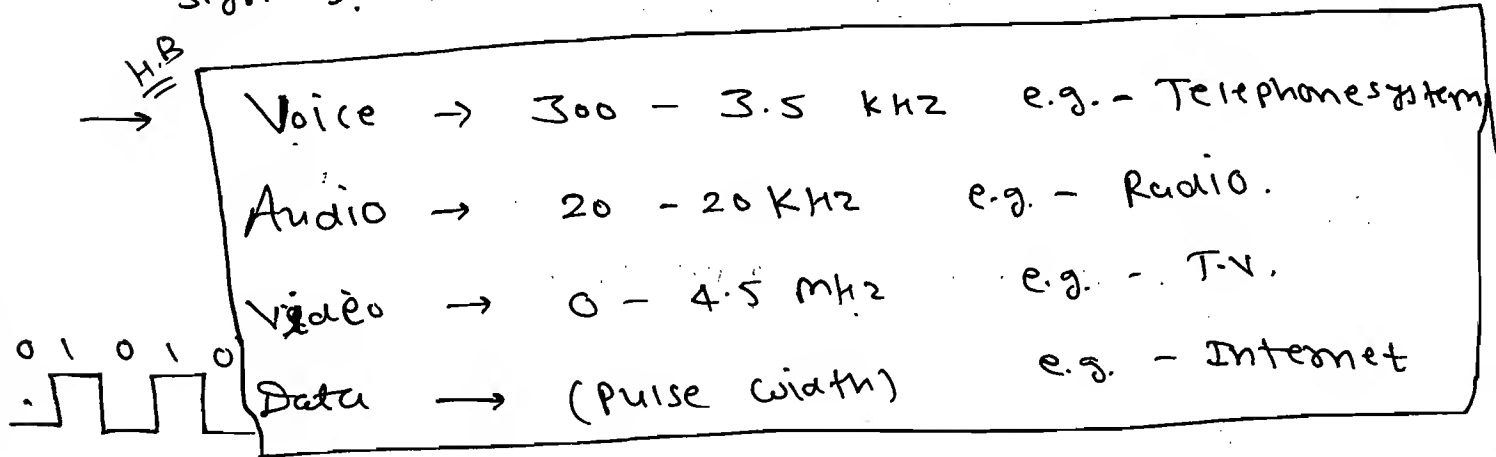 H.B
→ Voice → 300 - 3.5 KHZ e.g. - Telephonesystem
Audio → 20 - 20 KHZ e.g. - Radio.
Video → 0 - 4.5 MHz e.g. - T.V.
0 1 0 1 0
Data → (Pulse width) e.g. - Internet